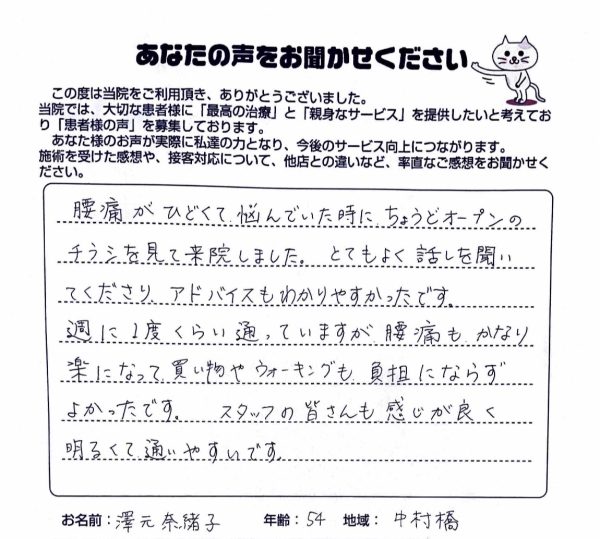 あなたの声をお聞かせください
この度は当院をご利用頂き、ありがとうございました。
当院では、大切な患者様に「最高の治療」と「親身なサービス」を提供したいと考えてお
り「患者様の声」を募集しております。
あなた様のお声が実際に私達の力となり、今後のサービス向上につながります。
施術を受けた感想や、接客対応について、他店との違いなど、率直なご感想をお聞かせく
ださい。
腰痛がひどくて悩んでいた時に、ちょうどオープンの
チラシを見て来院しました。とてもよく話しを聞い
てくださり、アドバイスもわかりやすかったです。
週に1度くらい通っていますが腰痛もかなり
楽になって、買い物やウォーキングも負担にならず
よかったです。 スタッフの皆さんも感じが良く
明るくて通いやすいです。
お名前：澤元奈緒子 年齢：54 地域：中村橋